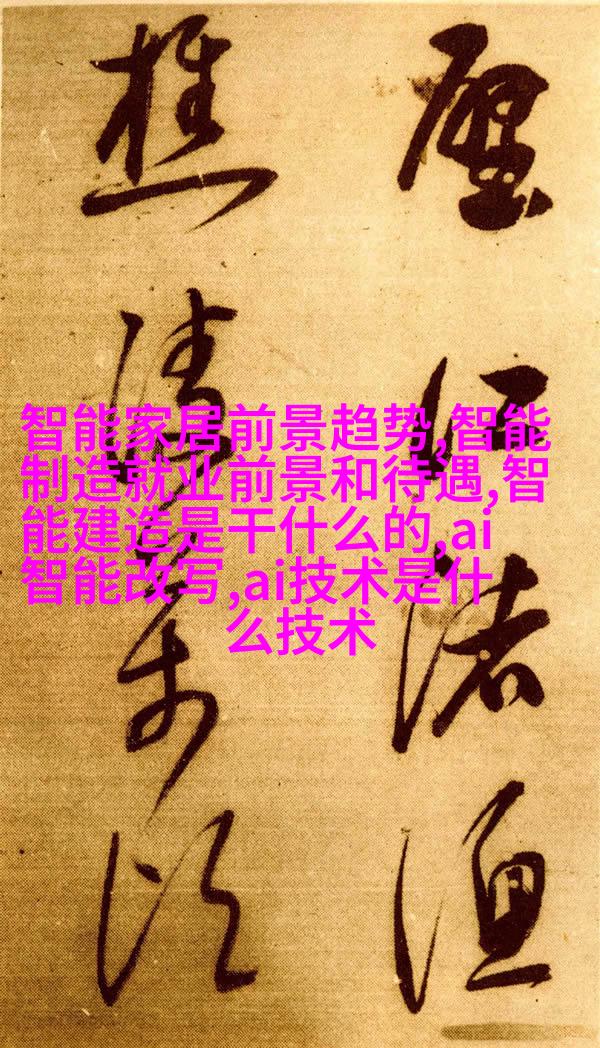 智能家居前景趋势,智能
制造就业前景和待遇,智
能建造是干什么的,ai
智能改写,ai技术是什
么技术
江渚漁
樵